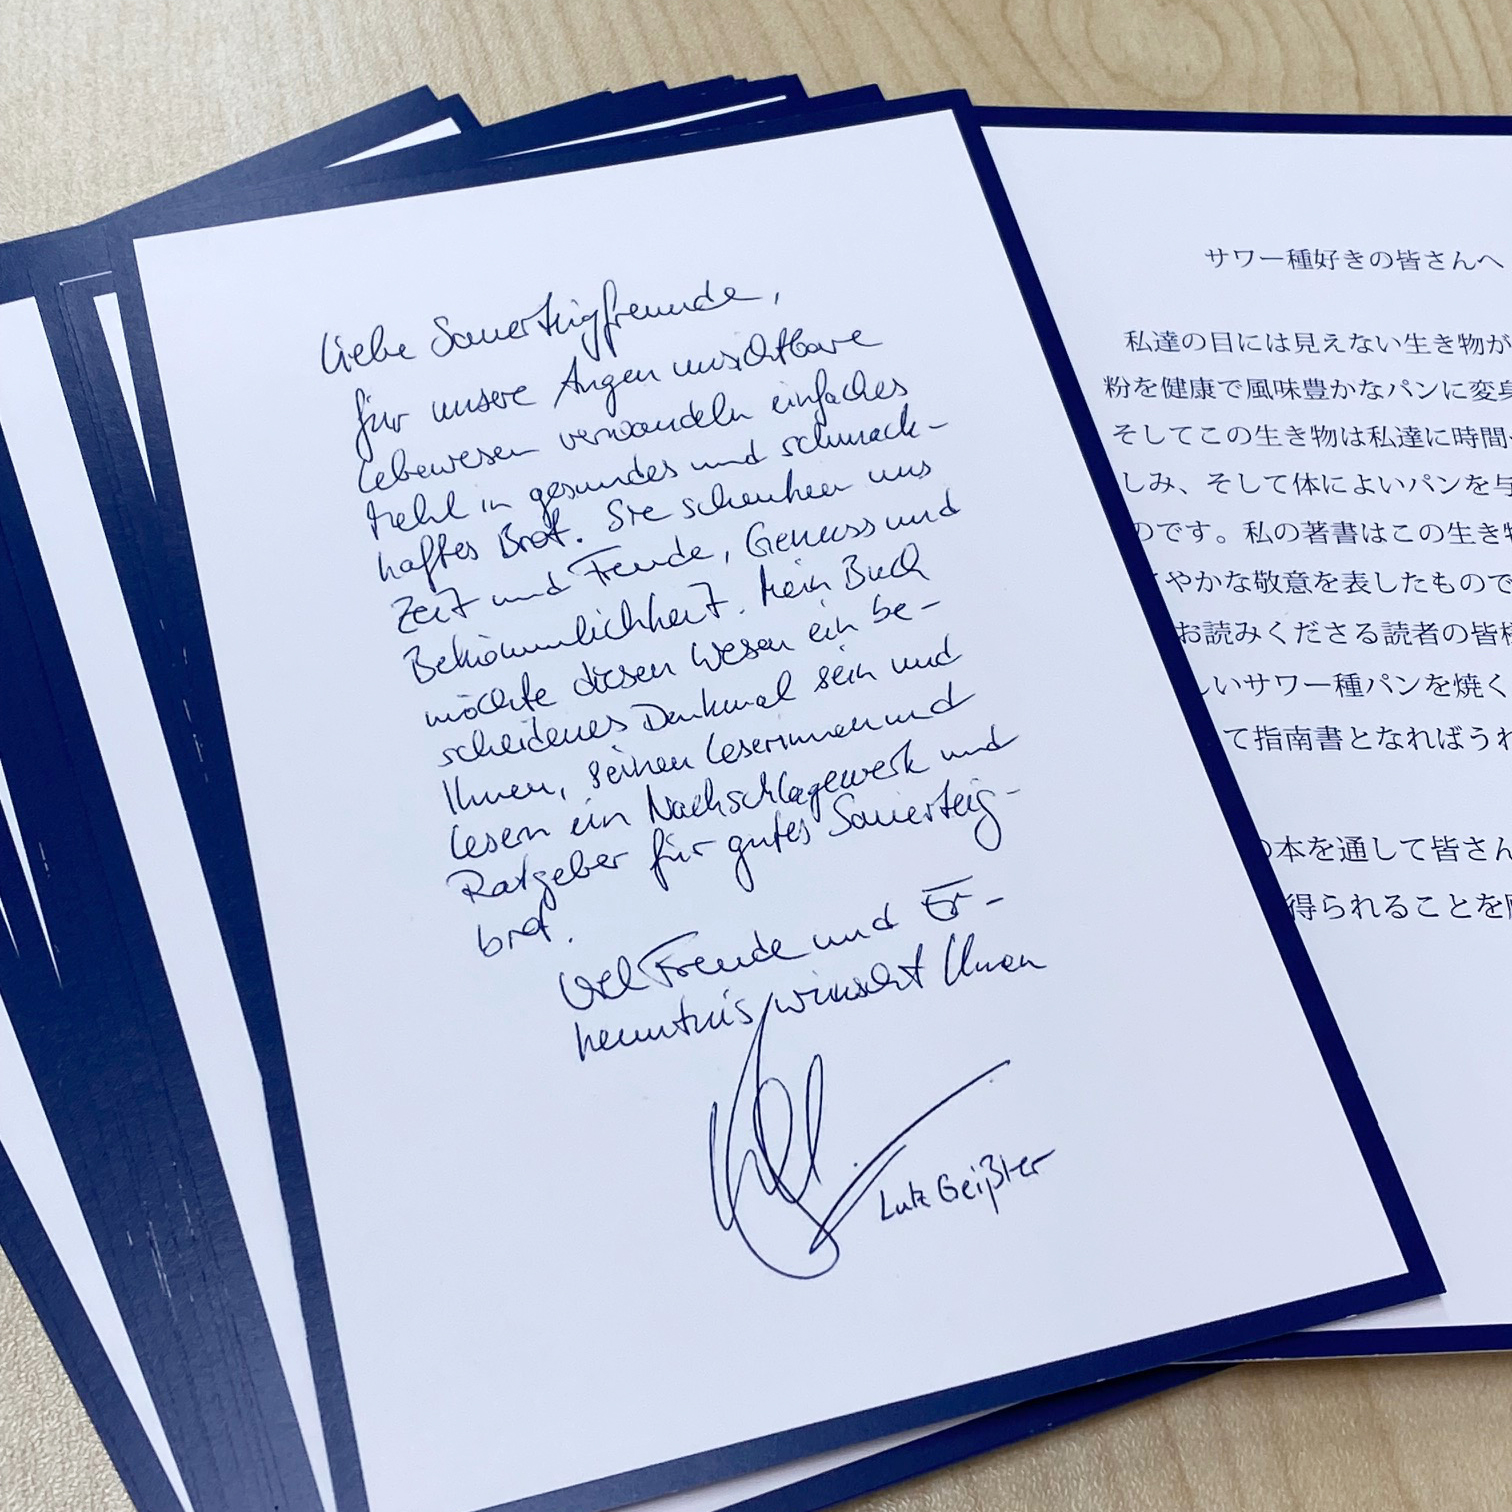 Liebe Sauerteigfreunde,
für unsere Augen unsichtbare
Lebewesen verwandeln einfaches
Mehl in gesundes und schmack-
haftes Brot. Sie schenken uns
Zeit und Freude, Genuss und
Bekömmlichkeit. Mein Buch
möchte diesen Wesen ein be-
scheidenes Denkmal sein und
Ihnen, seinen Leserinnen und
Lesern ein Nachschlagewerk und
Ratgeber für gutes Sauerteig-
brot.
Viel Freude und Er-
kenntnis wünscht Ihnen
Lutz Geißler
サワー種好きの皆さんへ
私達の目には見えない生き物が
粉を健康で風味豊かなパンに変身
そしてこの生き物は私達に時間
しみ、そして体によいパンを与
のです。私の著書はこの生き物
やかな敬意を表したもので
お読みくださる読者の皆様
しいサワー種パンを焼く
て指南書となればうれ
の本を通して皆さん
得られることを願